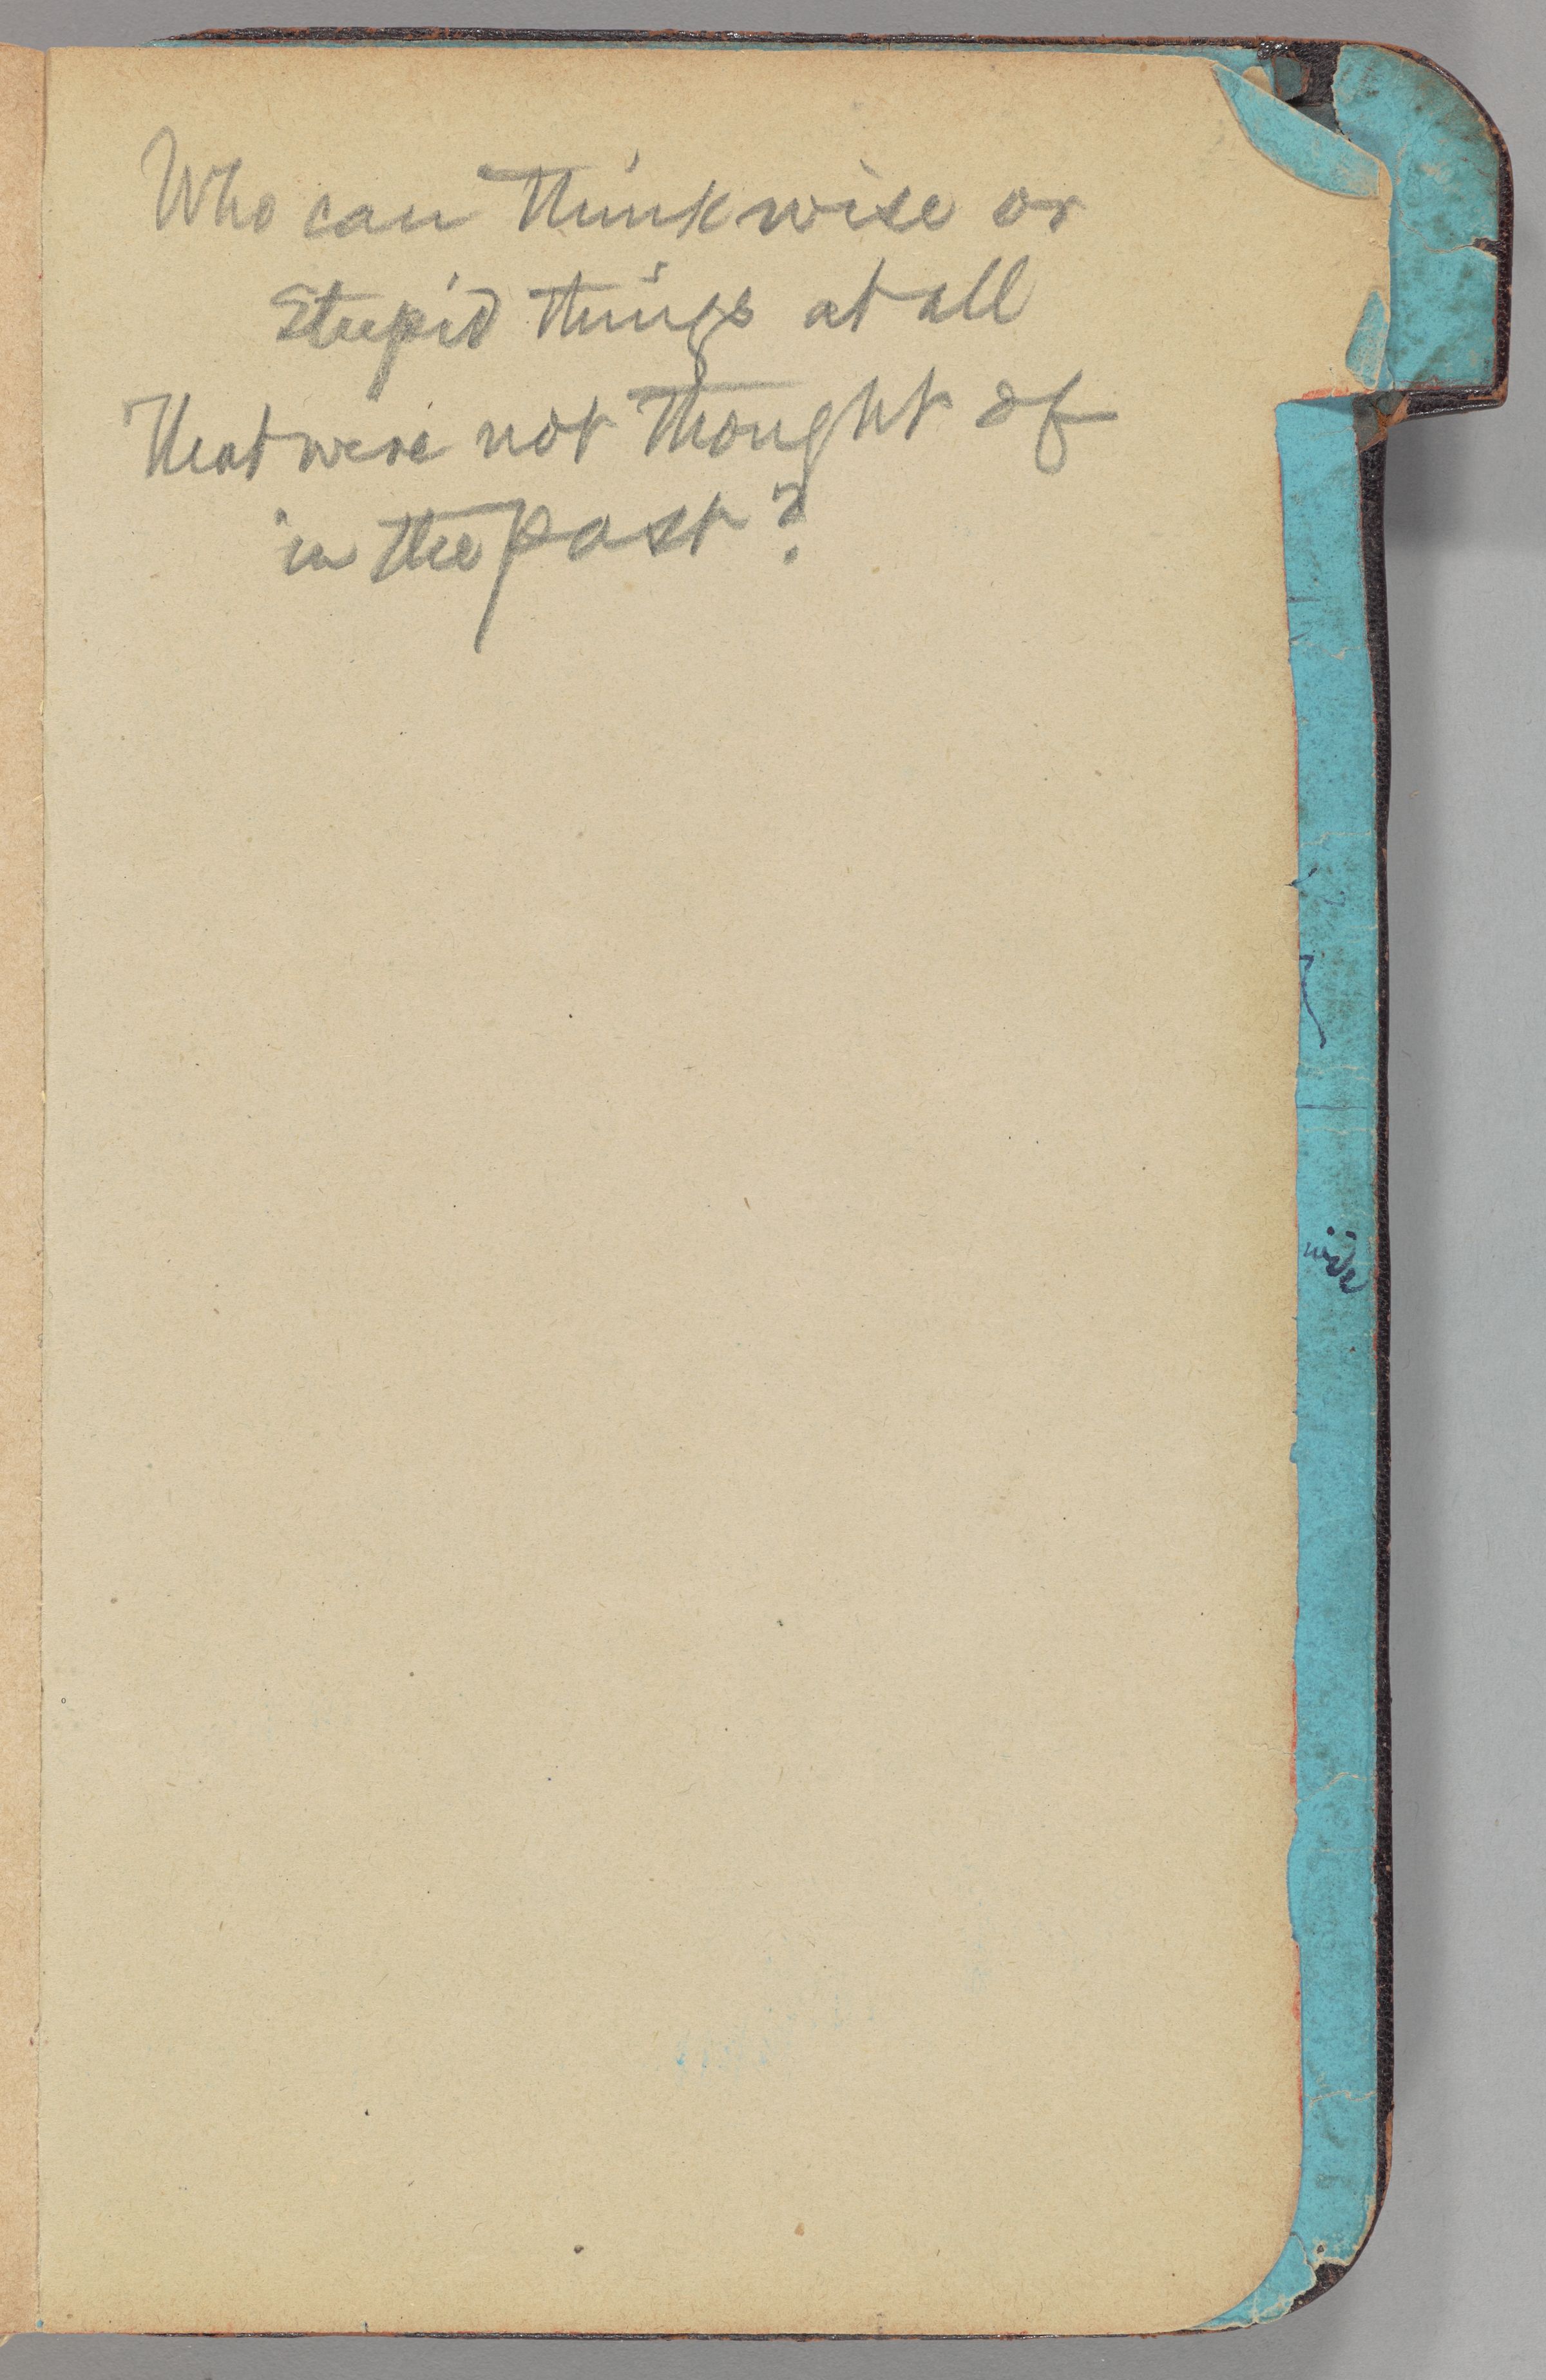 Who can think wise or
stupid things at all
that were not thought of
in the past?